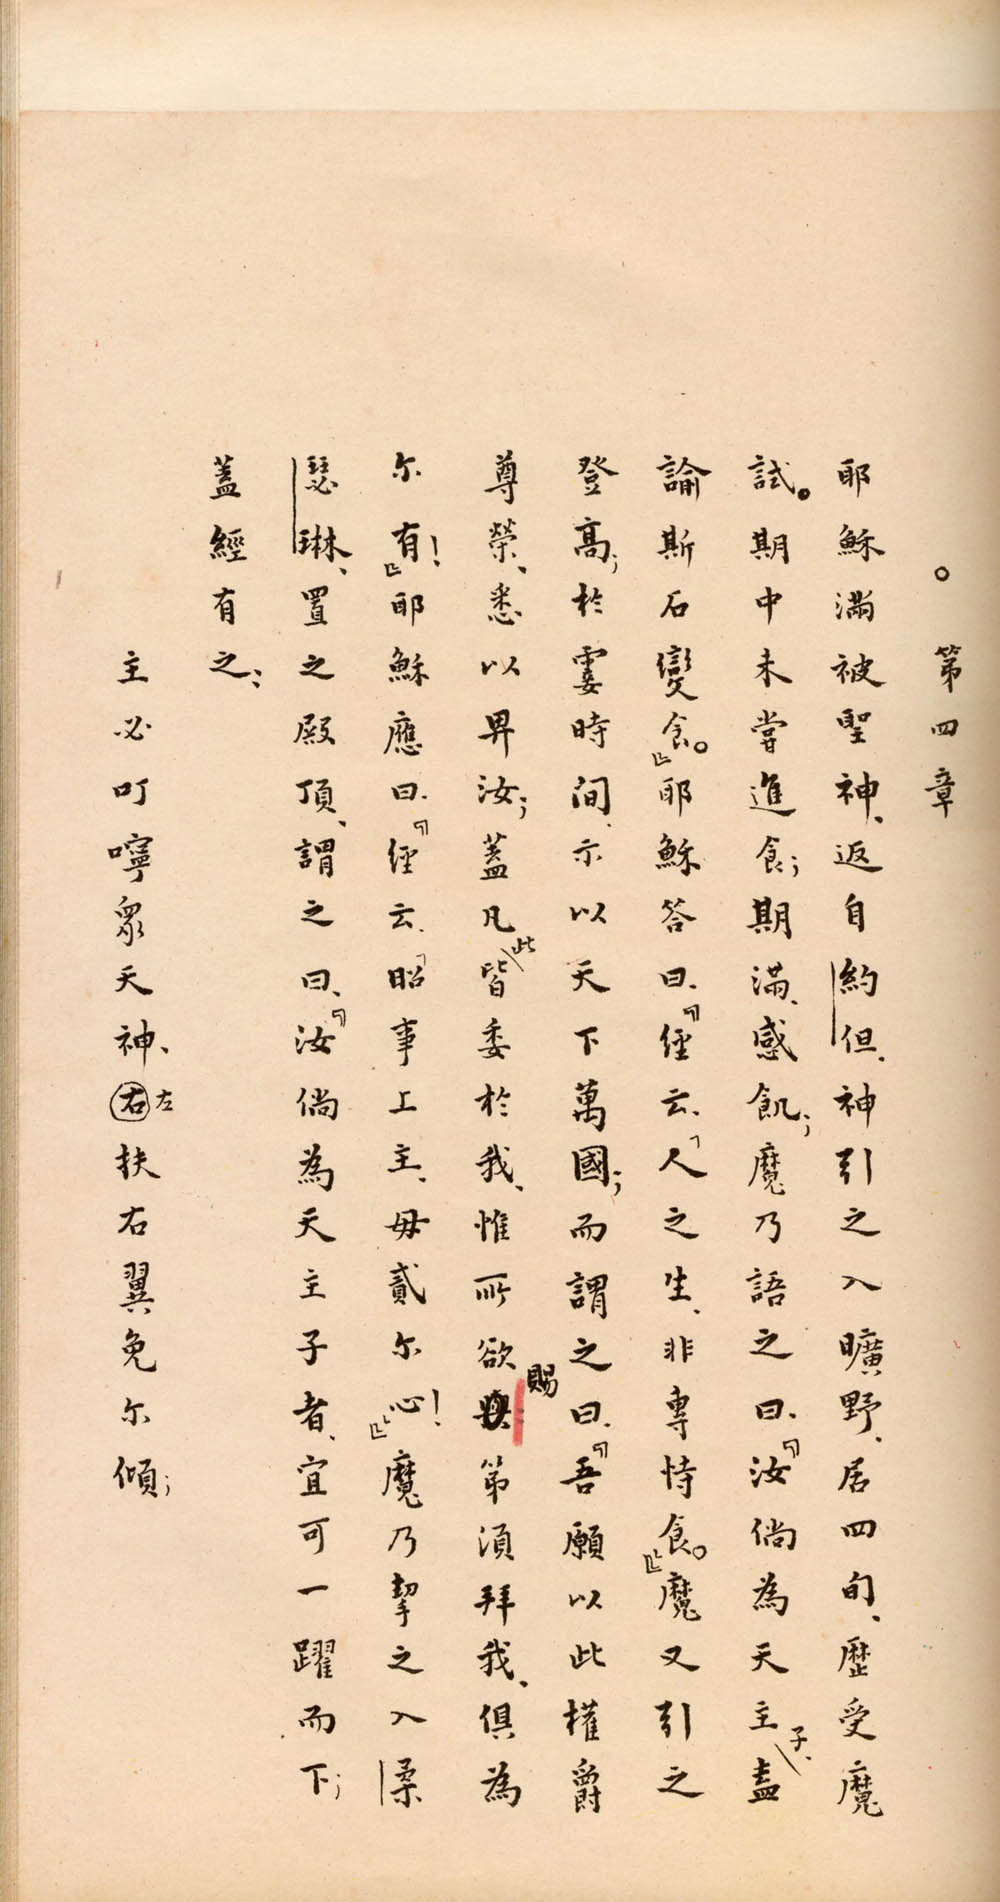 。第四章
耶穌滿被聖神、返自約但、神引之入曠野、居四旬、歷受魔
試。期中未嘗進食；期滿、感飢；魔乃語之曰、『汝倘為天主子、盍
諭斯石變食。』耶穌答曰、『經云、「人之生、非專恃食。」』魔又引之
登高；於霎時間、示以天下萬國；而謂之曰、『吾願以此權爵
尊榮、悉以畀汝；蓋凡此皆委於我、惟所欲賜第須拜我、俱為
尔有！』耶穌應曰、『經云、「昭事上主、毋貳尔心！」』魔乃挈之入柔
瑟琳、置之殿頂、謂之曰、『汝倘為天主子者、宜可一躍而下；
蓋經有之：
主必叮嚀眾天神、左扶右翼免尔傾；